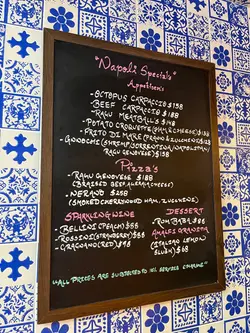 "Napoli Specials"
Appetizers
- OCTOPUS CARPACCIO $138
- BEEF CARPACCIO $158
- RAGU MEATBALLS $148
- POTATO CROQUETTE (HAM & CHEESE) $108
- FRITO DI MARE (PRAWN & ZUCCHINI)
- GNOCCHI (SHRIMP/SORRENTINA/NAPOLITAN/
RAGU GENOVESE) $138
Pizza's
- RAGU GENOVESE $188
(BRAISED BEEF, CHEESE)
- NERANO $258
(SMOKED CHERRYWOOD HAM, ZUCCHINE)
SPARKLING WINE
- BELLINI (PEACH) $68
- ROSSINI (STRAWBERRY) $68
$98
DESSERT
- RUM BABA $88
AMALFI GRANITA
(ITALIAN LEMON
SLUSH) $68
"ALL PRICES ARE SUBJECTED TO 10% SERVICE CHARGE"